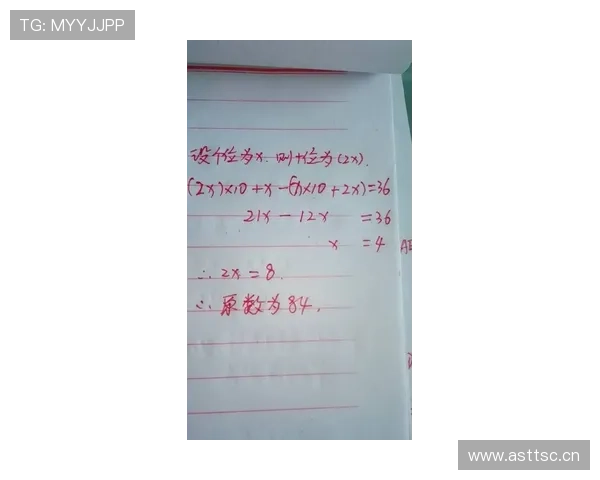 TG: MYYJJPP
设个位为x.则十位为(2x).
(2x)×10+x-(x×10+2x)=36
21x-12x=36
x=4
∴2x=8.
∴原数为84.
www.asttsc.cn